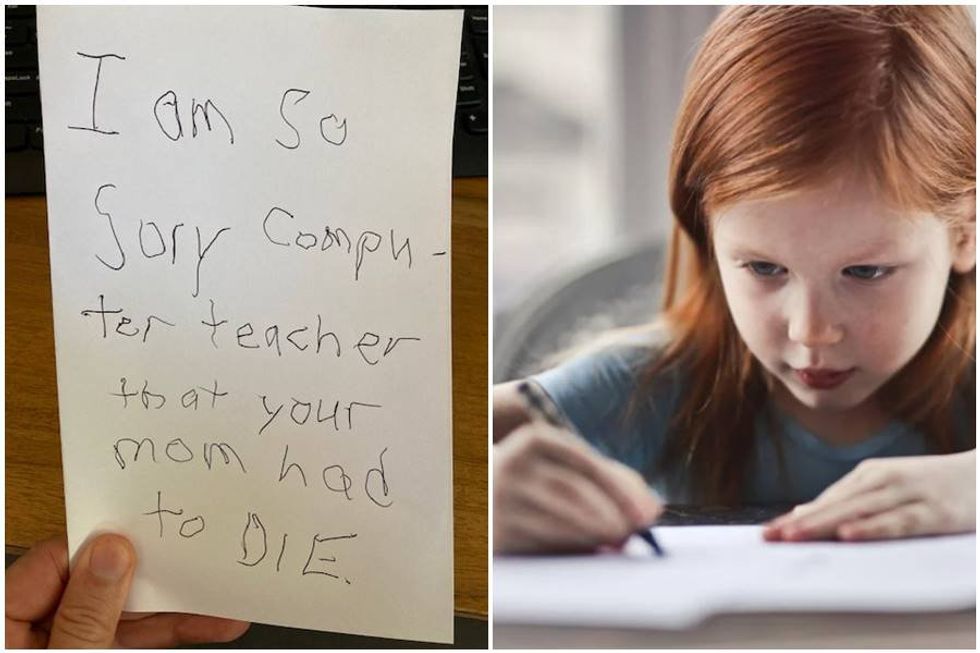 I am So
Sory Compu-
ter teacher
that your
mom had
to DIE.